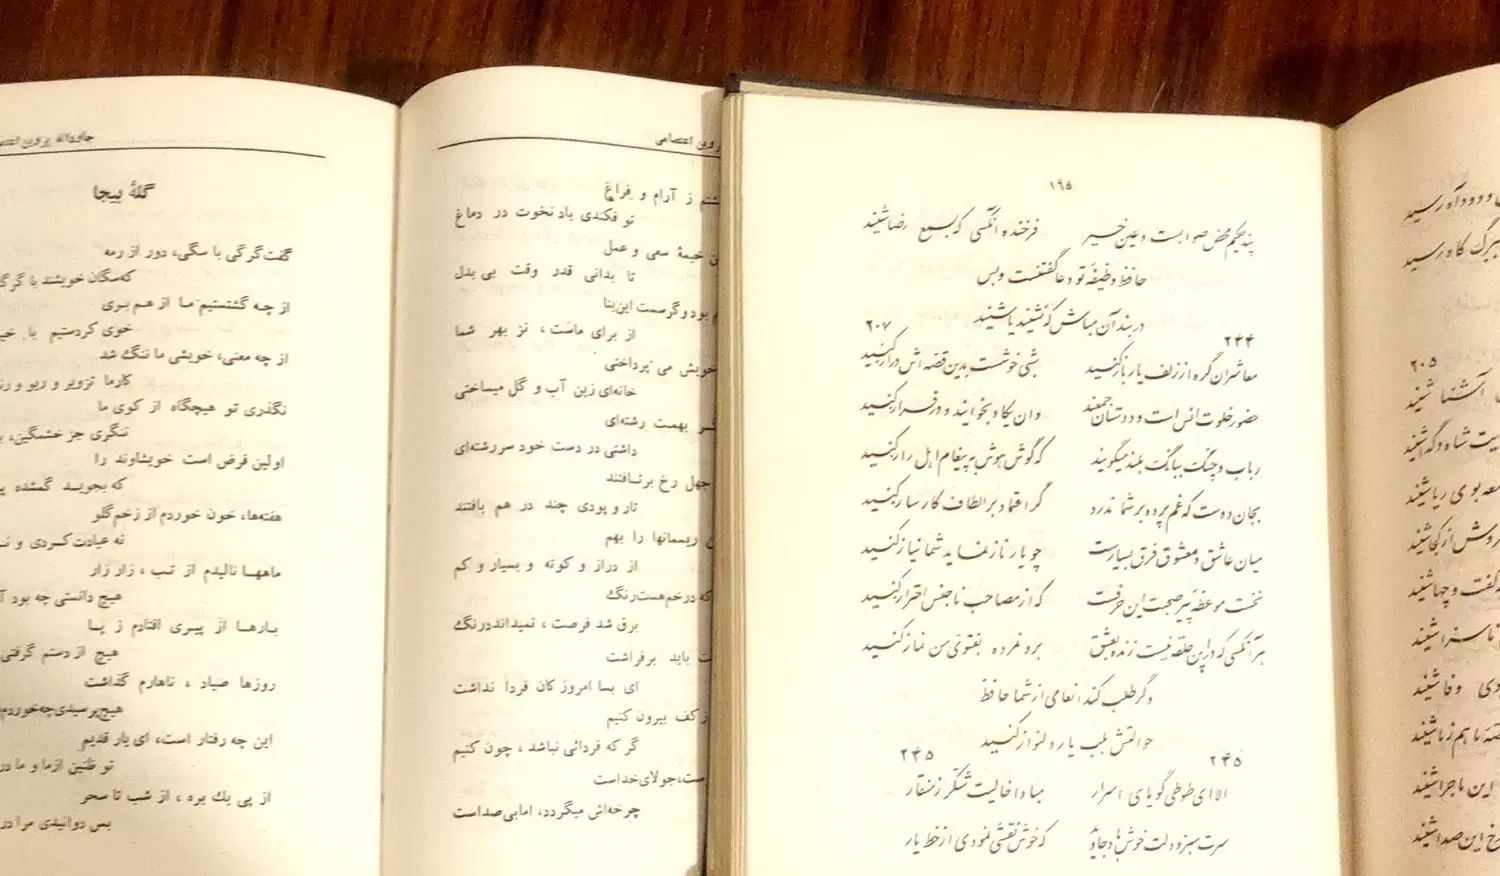 رسید
گاو رسید
۲۰۵
آشنا شنید
شاه و گدا شنید
بوی ریا شنید
از کجا شنید
گفت و چها شنید
ناسزا شنید
وفا شنید
باهم زنا شنید
این ماجرا شنید
این صدا شنید
۱۶۵
پند حکیم محض صوابست و عین خیر فرخنده آنکسی که بسمع رضا شنید
حافظ وظیفه تو دعا گفتنست و بس
در بند آن مباش که نشنید یا شنید
۲۴۴ ۲۰۷
معاشران گره از زلف یار باز کنید شبی خوشست بدین قصه اش دراز کنید
حضور خلوت انس است و دوستان جمعند وان یکاد بخوانید و در فراز کنید
رباب و چنگ ببانگ بلند میگویند که گوش هوش به پیغام اهل راز کنید
بجان دوست که غم پرده بر شما ندرد گر اعتماد بر الطاف کارساز کنید
میان عاشق و معشوق فرق بسیارست چو یار ناز نماید شما نیاز کنید
نخست موعظه پیر صحبت این حرفست که از مصاحب ناجنس احتراز کنید
هر آنکسی که در این حلقه نیست زنده بعشق برو نمرده بفتوی من نماز کنید
وگر طلب کند انعامی از شما حافظ
حوالتش بلب یار دلنواز کنید
۲۴۵ ۲۴۵
الا ای طوطی گویای اسرار مبادا خالیت شکر ز منقار
سرت سبز و دلت خوش باد جاوید که خوش نقشی نمودی از خط یار
اعتصامی
ز آرام و فراغ
تو فکندی باد نخوت در دماغ
خیمهٔ سعی و عمل
تا بدانی قدر وقت بی بدل
بود و گرسست این بنا
از برای ماست ، نز بهر شما
خویش می پرداختی
خانه‌ای زین آب و گل میساختی
بهمت رشته‌ای
داشتی در دست خود سررشته‌ای
جهل رخ برتافتند
تار و پودی چند در هم بافتند
ریسمانها را بهم
از دراز و کوته و بسیار و کم
که درخم هست رنگ
برق شد فرصت ، نمیداند درنگ
باید برفراشت
ای بسا امروز کان فردا نداشت
کف بیرون کنیم
گر که فردائی نباشد ، چون کنیم
جولای خداست
چرخه‌اش میگردد، اما بی صداست
جاودانهٔ پروین
گلهٔ بیجا
گفت گرگی با سگی، دور از رمه
که سگان خویشند با گرگان
از چه گشتستیم ما از هم بری
خوی کردستیم با
از چه معنی، خویشی ما ننگ شد
کار ما تزویر و ریو و
نگذری تو هیچگاه از کوی ما
ننگری جز خشمگین،
اولین فرض است خویشاوند را
که بجویند گمشده
هفته‌ها، خون خوردم از زخم گلو
نه عیادت کردی و
ماهها نالیدم از تب ، زار زار
هیچ دانستی چه بود
بارها از پیری افتادم ز پا
هیچ از دستم گرفتی
روزها صیاد ، ناهارم گذاشت
هیچ پرسیدی چه خوردم
این چه رفتار است، ای یار قدیم
تو ظنین از ما و ما در
از پی یك بره ، از شب تا سحر
بس دوانیدی مرا در